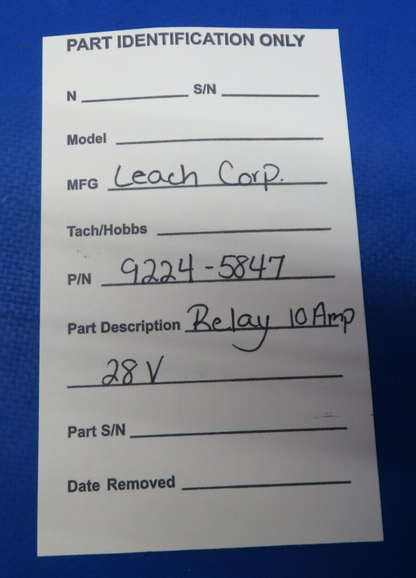 PART IDENTIFICATION ONLY
N S/N
Model
MFG Leach Corp.
Tach/Hobbs
P/N 9224-5847
Part Description Relay 10 Amp
28 V
Part S/N
Date Removed